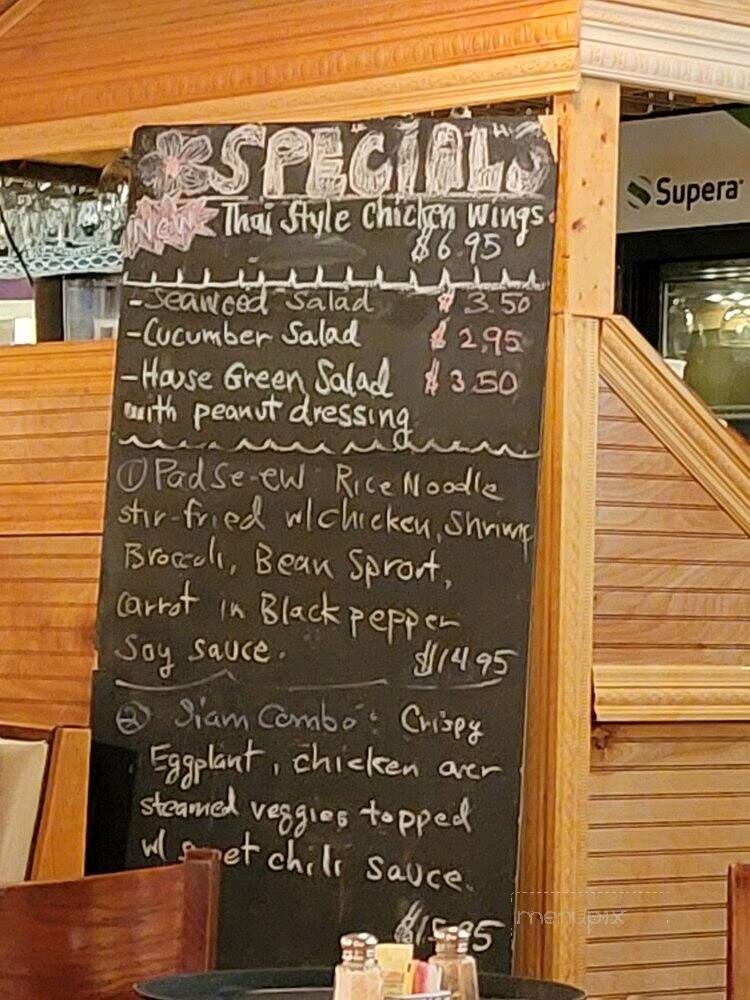 "SPECIALS"
Supera
NEW Thai Style Chicken Wings.
$6.95
-Seaweed Salad $3.50
-Cucumber Salad $2.95
-House Green Salad $3.50
with peanut dressing
① Pad Se-ew Rice Noodle
stir-fried w/chicken, Shrimp
Broccoli, Bean Sprout,
Carrot in Black pepper
Soy sauce. $14.95
② Siam Combo: Crispy
Eggplant, chicken over
steamed veggies topped
w/ sweet chili sauce.
$15.95
menupix